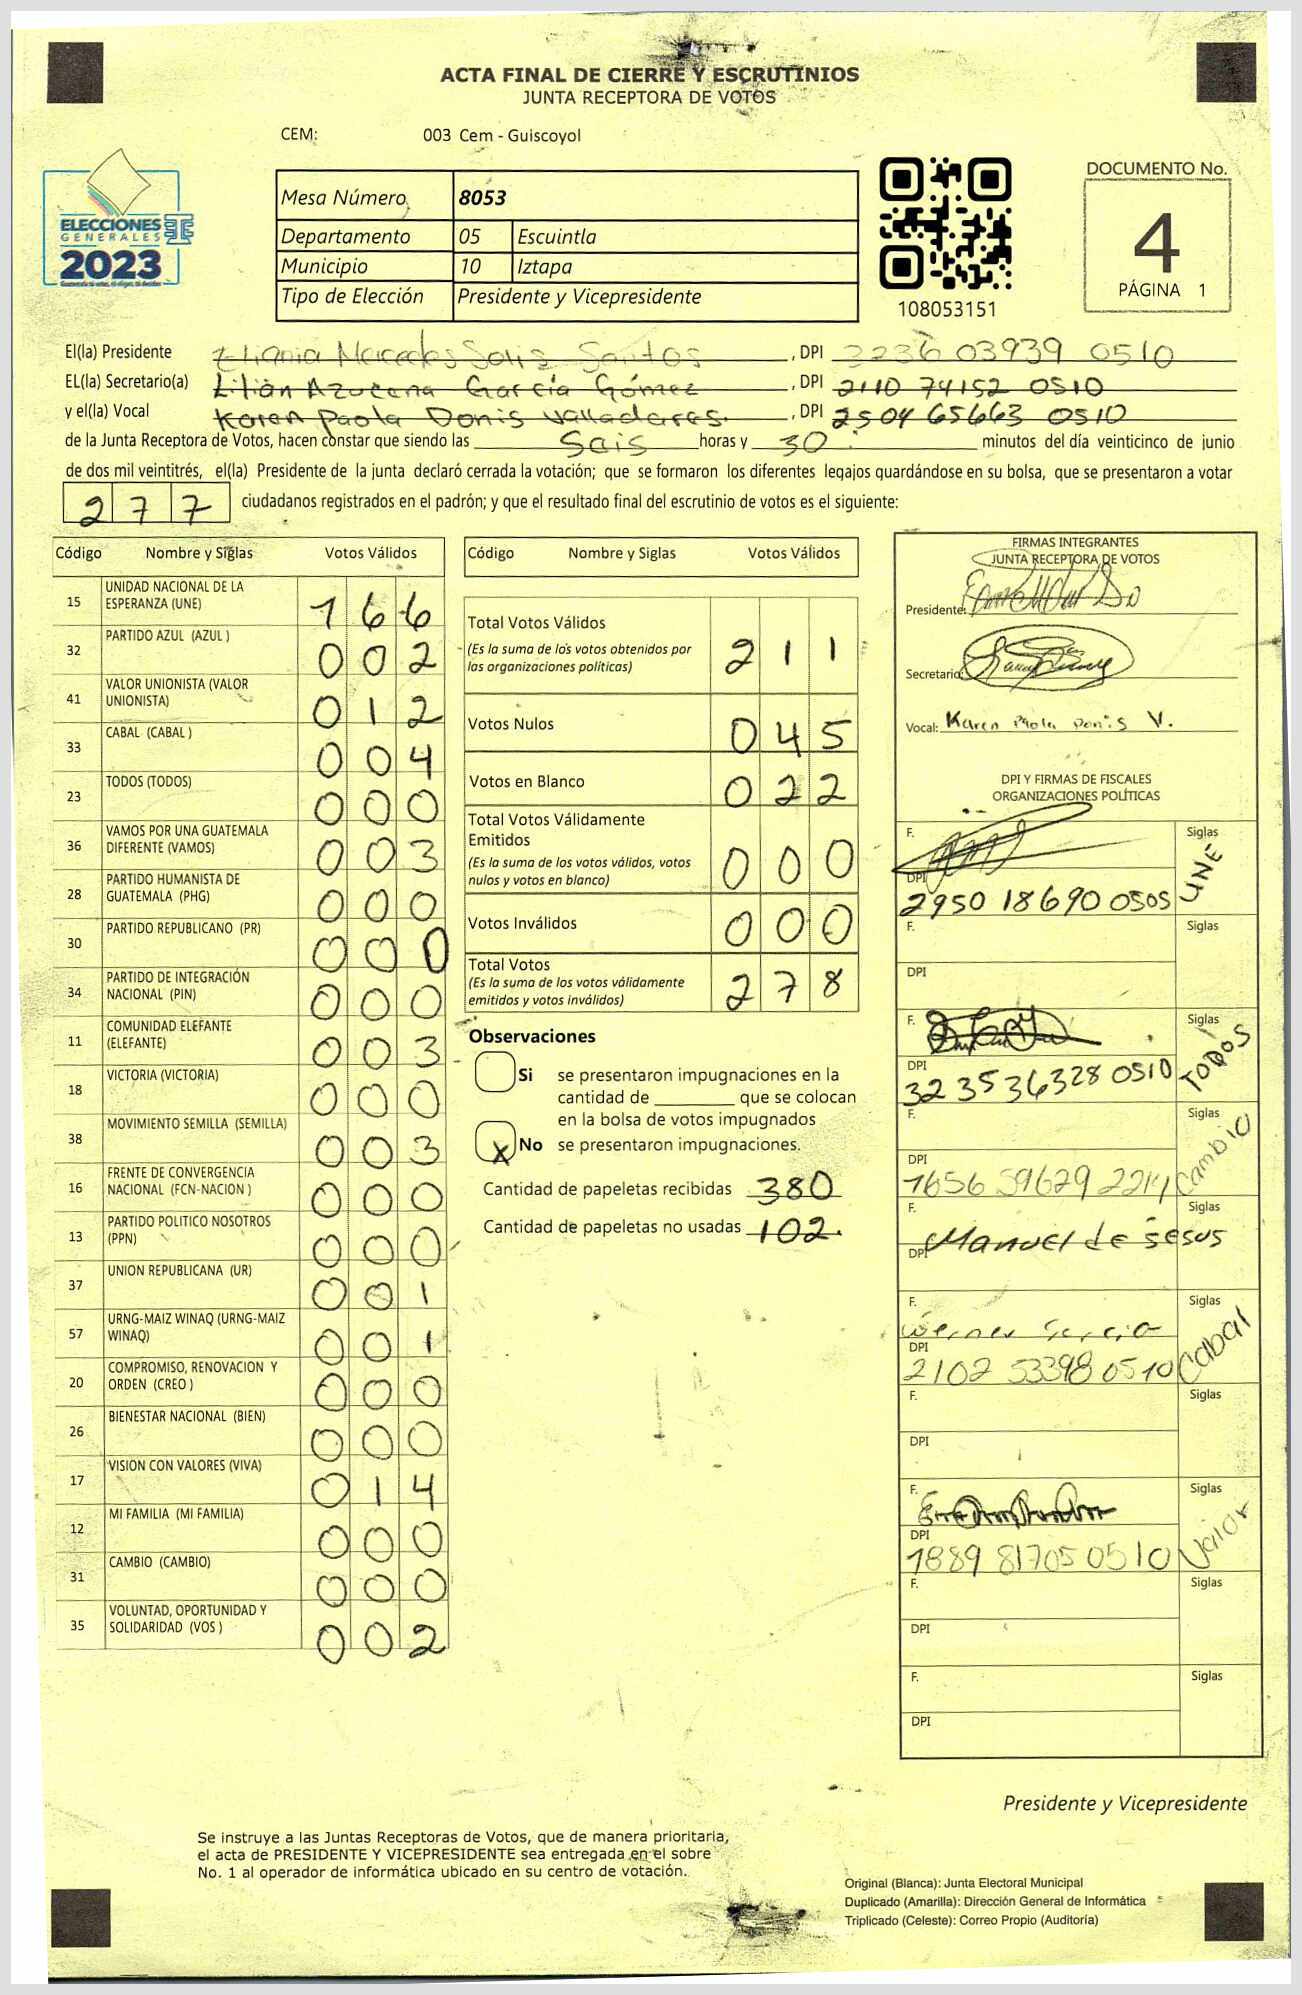 ACTA FINAL DE CIERRE Y ESCRUTINIOS
JUNTA RECEPTORA DE VOTOS
CEM: 003 Cem - Guiscoyol
ELECCIONES
GENERALES
2023
Mesa Número 8053
Departamento 05 Escuintla
Municipio 10 Iztapa
Tipo de Elección Presidente y Vicepresidente
108053151
DOCUMENTO No.
4
PÁGINA 1
El(la) Presidente Mercedes Solis Santos, DPI 3236 03939 0510
EL(la) Secretario(a) Lilián Azucena García Gómez, DPI 2110 74152 0510
y el(la) Vocal Karen Paola Donis Valladares., DPI 2504 65663 0510
de la Junta Receptora de Votos, hacen constar que siendo las Seis horas y 30 minutos del día veinticinco de junio
de dos mil veintitrés, el(la) Presidente de la junta declaró cerrada la votación; que se formaron los diferentes legajos quardándose en su bolsa, que se presentaron a votar
277 ciudadanos registrados en el padrón; y que el resultado final del escrutinio de votos es el siguiente:
Código Nombre y Siglas Votos Válidos
15 UNIDAD NACIONAL DE LA
ESPERANZA (UNE) 166
32 PARTIDO AZUL (AZUL ) 002
41 VALOR UNIONISTA (VALOR
UNIONISTA) 012
33 CABAL (CABAL ) 004
23 TODOS (TODOS) 000
36 VAMOS POR UNA GUATEMALA
DIFERENTE (VAMOS) 003
28 PARTIDO HUMANISTA DE
GUATEMALA (PHG) 000
30 PARTIDO REPUBLICANO (PR) 000
34 PARTIDO DE INTEGRACIÓN
NACIONAL (PIN) 000
11 COMUNIDAD ELEFANTE
(ELEFANTE) 003
18 VICTORIA (VICTORIA) 000
38 MOVIMIENTO SEMILLA (SEMILLA) 003
16 FRENTE DE CONVERGENCIA
NACIONAL (FCN-NACION ) 000
13 PARTIDO POLITICO NOSOTROS
(PPN) 000
37 UNION REPUBLICANA (UR) 001
57 URNG-MAIZ WINAQ (URNG-MAIZ
WINAQ) 001
20 COMPROMISO, RENOVACION Y
ORDEN (CREO ) 000
26 BIENESTAR NACIONAL (BIEN) 000
17 VISION CON VALORES (VIVA) 014
12 MI FAMILIA (MI FAMILIA) 000
31 CAMBIO (CAMBIO) 000
35 VOLUNTAD, OPORTUNIDAD Y
SOLIDARIDAD (VOS ) 002
Código Nombre y Siglas Votos Válidos
Total Votos Válidos 211
(Es la suma de los votos obtenidos por
las organizaciones políticas)
Votos Nulos 045
Votos en Blanco 022
Total Votos Válidamente
Emitidos 000
(Es la suma de los votos válidos, votos
nulos y votos en blanco)
Votos Inválidos 000
Total Votos 278
(Es la suma de los votos válidamente
emitidos y votos inválidos)
Observaciones
Si se presentaron impugnaciones en la
cantidad de ________ que se colocan
en la bolsa de votos impugnados
X No se presentaron impugnaciones.
Cantidad de papeletas recibidas 380
Cantidad de papeletas no usadas 102.
FIRMAS INTEGRANTES
JUNTA RECEPTORA DE VOTOS
Presidente:
Secretario:
Vocal: Karen Paola Donis V.
DPI Y FIRMAS DE FISCALES
ORGANIZACIONES POLÍTICAS
F. Siglas
DPI 2950 18690 0505 UNE
F. Siglas
DPI
F. Siglas
DPI 3235 36328 0510 TODOS
F. Siglas
DPI 1656 59629 2214 Cambio
F. Siglas
DPI Manuel de Jesus
F. Siglas
DPI 2102 53398 0510 Cabal
F. Siglas
DPI
F. Siglas
DPI 1889 81705 0510 Valor
F. Siglas
DPI
F. Siglas
DPI
Presidente y Vicepresidente
Se instruye a las Juntas Receptoras de Votos, que de manera prioritaria,
el acta de PRESIDENTE Y VICEPRESIDENTE sea entregada en el sobre
No. 1 al operador de informática ubicado en su centro de votación.
Original (Blanca): Junta Electoral Municipal
Duplicado (Amarilla): Dirección General de Informática
Triplicado (Celeste): Correo Propio (Auditoría)